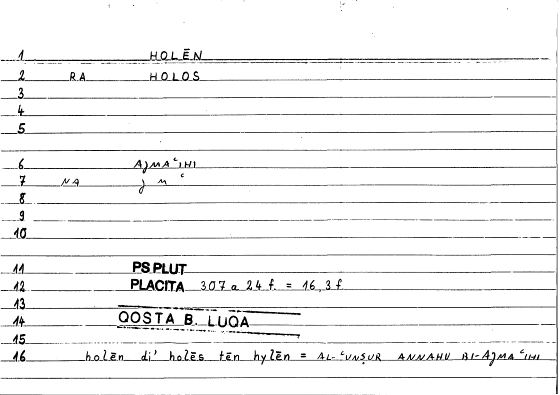 1 HOLĒN
2 RA HOLOS
3
4
5
6 AJMAʿIHI
7 NA j m ʿ
8
9
10
11 PS.PLUT
12 PLACITA 307 a 24 f. = 16, 3 f
13
14 QOSTA B. LUQA
15
16 holēn di' holēs tēn hylēn = AL-ʿUNṢUR ANNAHU BI-AJMAʿIHI